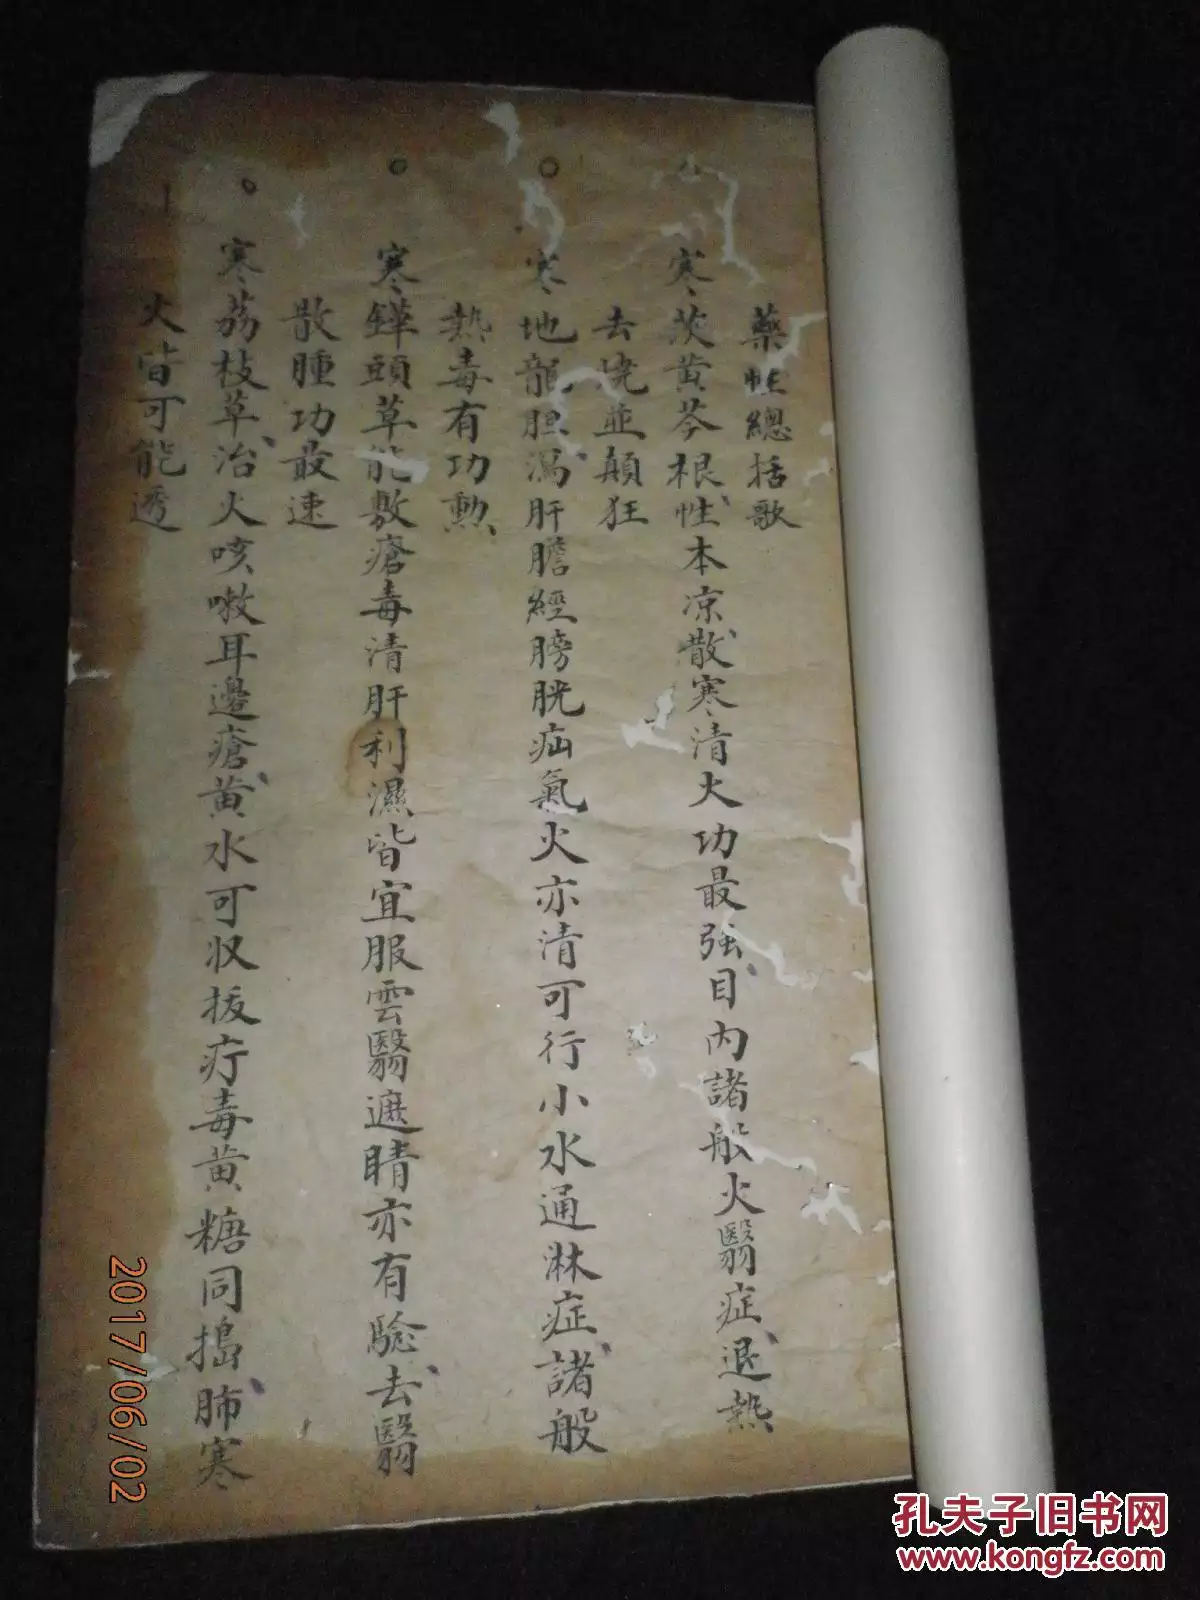 藥性總括歌
寒茨黄芩根性本凉散寒清火功最強目內諸般火翳症退熱
去燒並顛狂
寒地龍胆瀉肝膽經膀胱疝氣火亦清可行小水通淋症諸般
熱毒有功勲
寒鏵頭草能敷瘡毒清肝利濕皆宜服雲翳遮睛亦有驗去翳
散腫功最速
寒荔枝草治火咳嗽耳邊瘡黄水可収拔疔毒黄糖同搗肺寒
火皆可能透
2017/06/02
孔夫子旧书网
www.kongfz.com